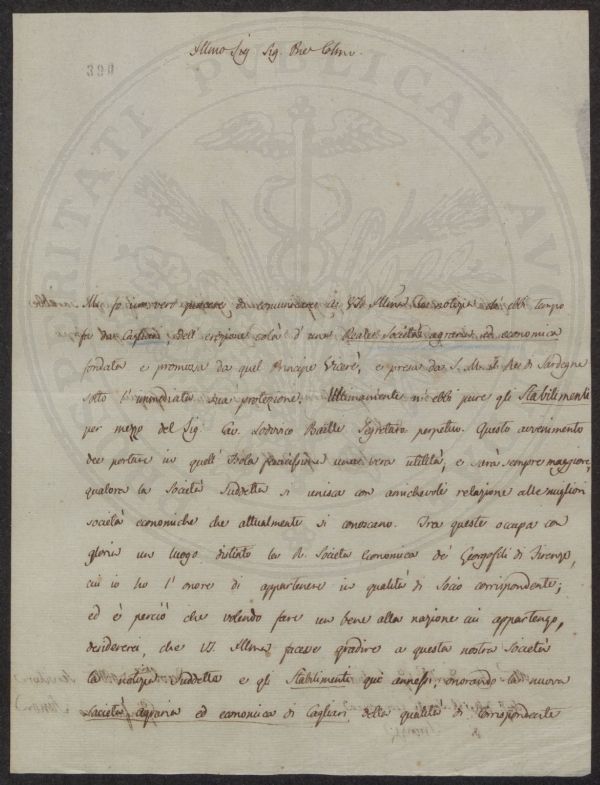 390
Illmo Sig Sig. Pne Colmo.
PROSPERITATI PUBLICAE AU
Mi fo un vero piacere di comunicare a VS. Illma la notizia ch' ebbi tempo
fa da Cagliari dell' erezione colà d' una Reale Società agraria ed economica
fondata e promossa da quel Principe Vicerè, e presa da S. M. il Re di Sardegna
sotto l' immediata sua protezione. Ultimamente n' ebbi pure gli Stabilimenti
per mezzo del Sig. Cav. Lodovico Baille Segretaro perpetuo. Questo avvenimento
dee portare in quell' Isola una vera utilità, e sarà sempre maggiore,
qualora la Società Suddetta si unisca con amichevole relazione alle migliori
società economiche che attualmente si conoscano. Tra queste occupa con
gloria un luogo distinto la R. Società economica de' Georgofili di Firenze,
cui io ho l' onore di appartenere in qualità di Socio corrispondente;
ed è perciò che volendo fare un bene alla nazione cui appartengo,
desidererei, che VS. Illma facesse gradire a questa nostra Società
la notizia Suddetta e gli Stabilimenti quì annessi, onorando la nuova
Società agraria ed economica di Cagliari della qualità di Corrispondente